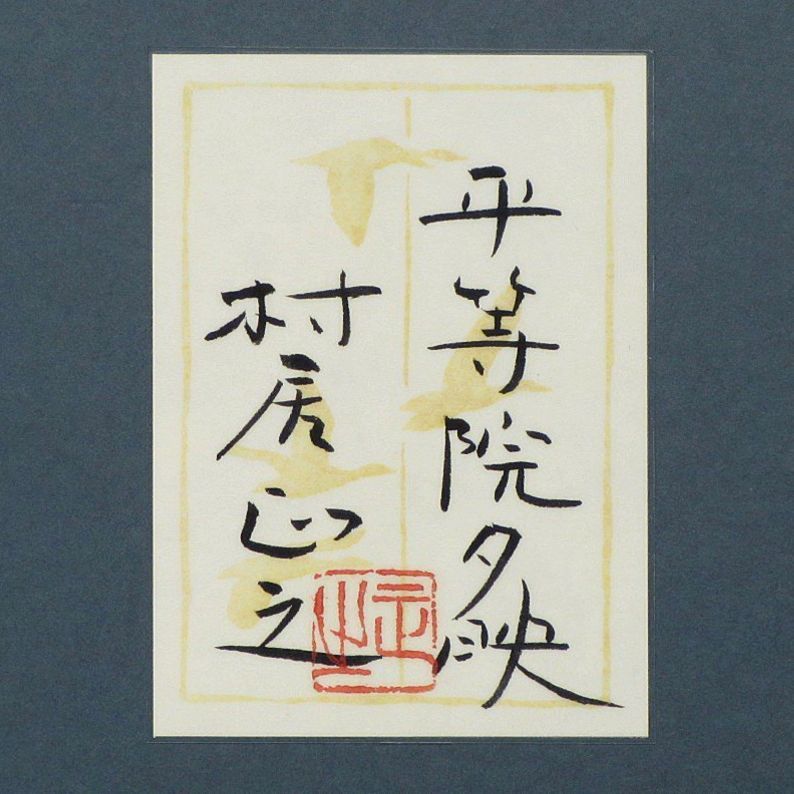 平等院夕映
村居正之